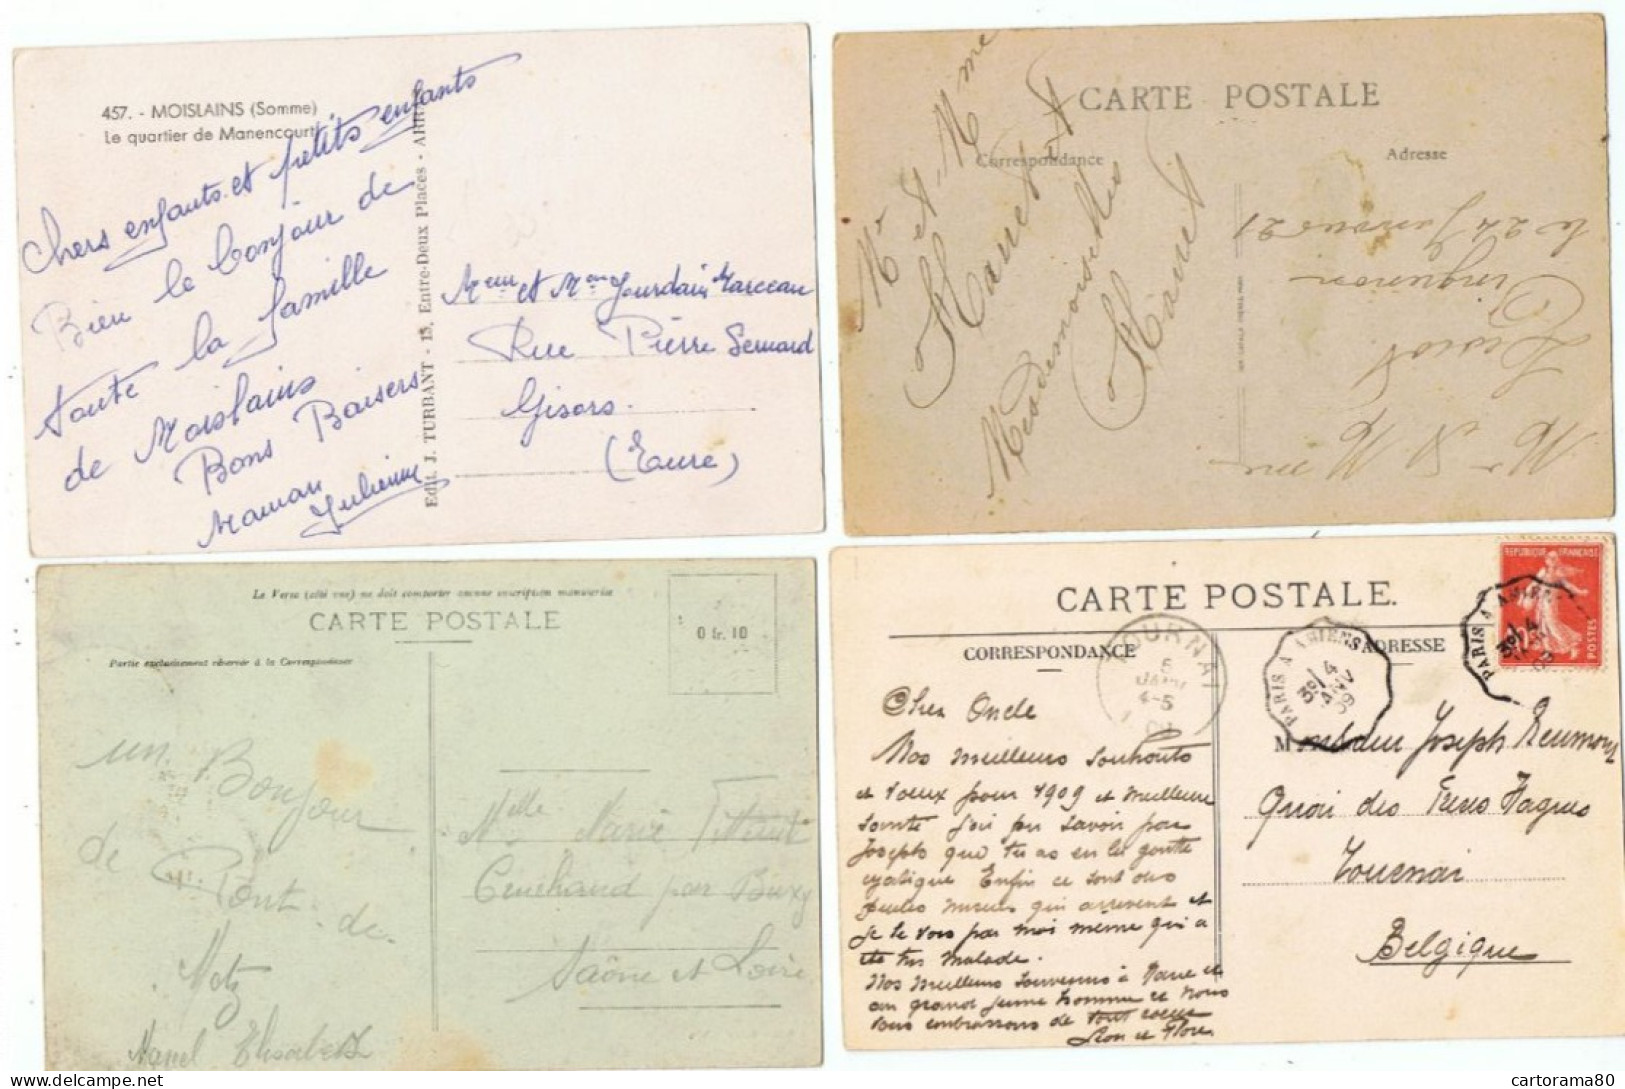 457. - MOISLAINS (Somme)
Le quartier de Manencourt
Chers enfants et petits enfants
Bien le bonjour de
toute la famille
de Moislains
Bons Baisers
Maman
Julienne
Edit. J. TURBANT - 15, Entre-Deux Places - ARRAS
Meur et Mme Jourdain Marceau
Rue Pierre Semard
Gisors.
(Eure)
CARTE POSTALE
Correspondance
Adresse
Mr et Mme
Mesdemoiselles
Mr & Mme
le 24 Janvier 21
Le Verso (côté vue) ne doit comporter aucune inscription manuscrite
CARTE POSTALE
Partie exclusivement réservée à la Correspondance
0 fr. 10
un Bonjour
de
Pont-de-
Metz
Marcel Elisabeth
Melle Marie
par Buxy
Saône et Loire
CARTE POSTALE.
CORRESPONDANCE
ADRESSE
TOURNAI
5
JANV
4-5
PARIS A AMIENS
3º/4
JANV
09
REPUBLIQUE FRANÇAISE
POSTES
PARIS A AMIENS
3º/4
09
Cher Oncle
Nos meilleurs Souhaits
et voeux pour 1909 et meilleure
Santé j'ai pu savoir par
Joseph que tu as eu la goutte
Enfin ce sont des
qui arrivent et
je le vois par moi meme qui a
été tres malade.
Nos meilleurs Souvenirs à Marie et
au grand jeune homme et Nous
vous embrassons de tout coeur
Léon et Flore
Monsieur Joseph
Quai des
Tournai
Belgique
cartorama80